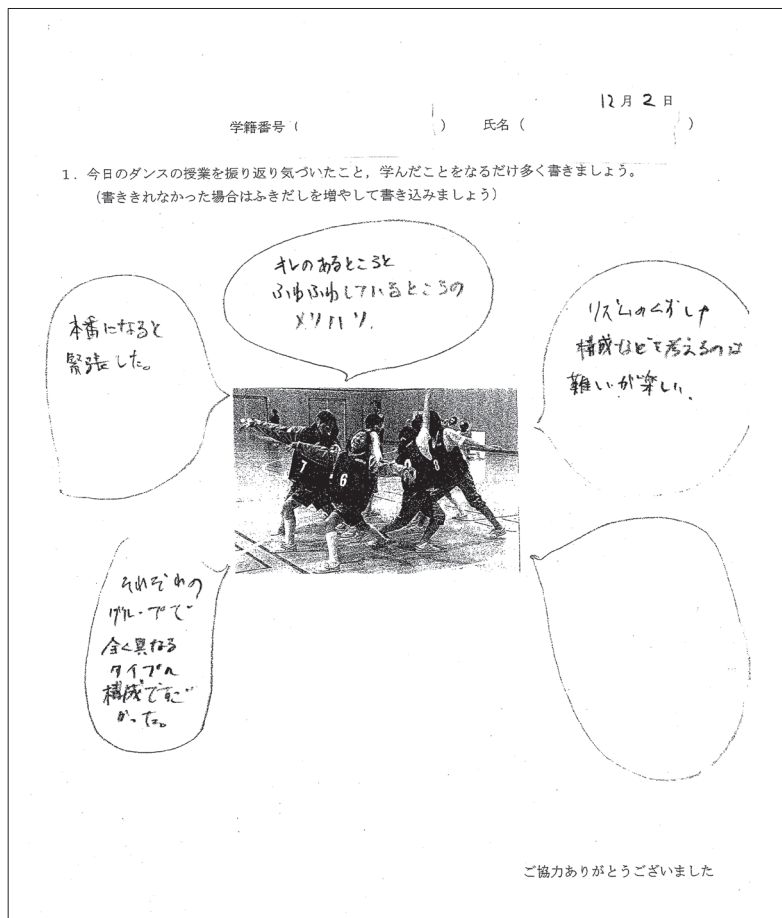 12月2日
学籍番号（　　　　　）　氏名（　　　　　）
1．今日のダンスの授業を振り返り気づいたこと，学んだことをなるだけ多く書きましょう。
（書ききれなかった場合はふきだしを増やして書き込みましょう）
キレのあるところと
ふわふわしているところの
メリハリ．
本番になると
緊張した。
リズムのくずしや
構成などを考えるのは
難しいが楽しい．
7
6
8
それぞれの
グループで
全く異なる
タイプの
構成ですご
かった。
ご協力ありがとうございました